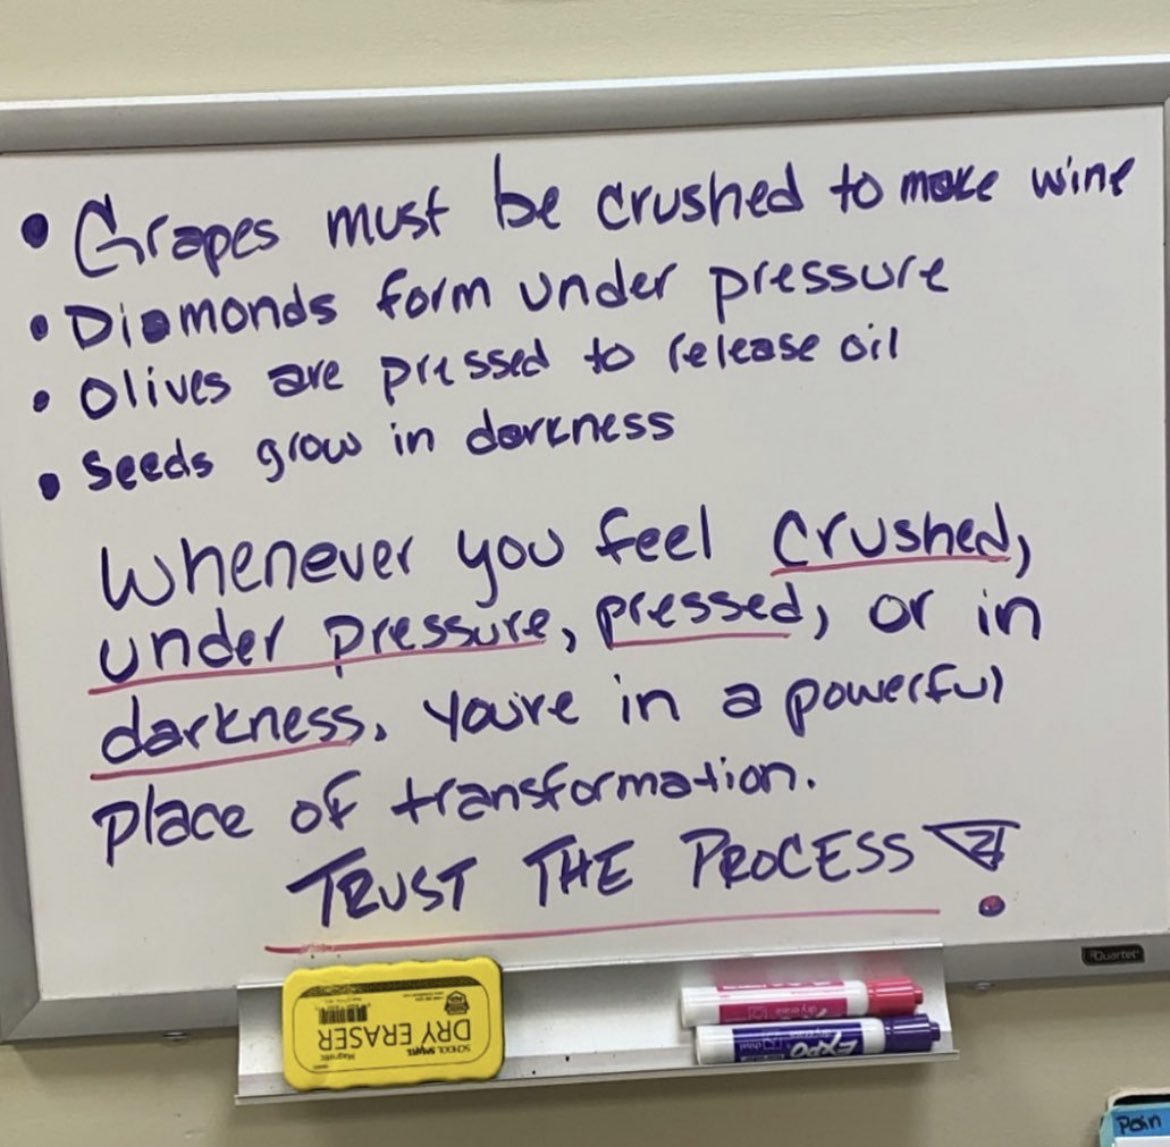 • Grapes must be crushed to make wine
• Diamonds form under pressure
• Olives are pressed to release oil
• Seeds grow in darkness
Whenever you feel crushed,
under pressure, pressed, or in
darkness. You're in a powerful
place of transformation.
TRUST THE PROCESS!
Quartel
SCHOOL SMART
DRY ERASER
Magnetic
EXPO
Pain